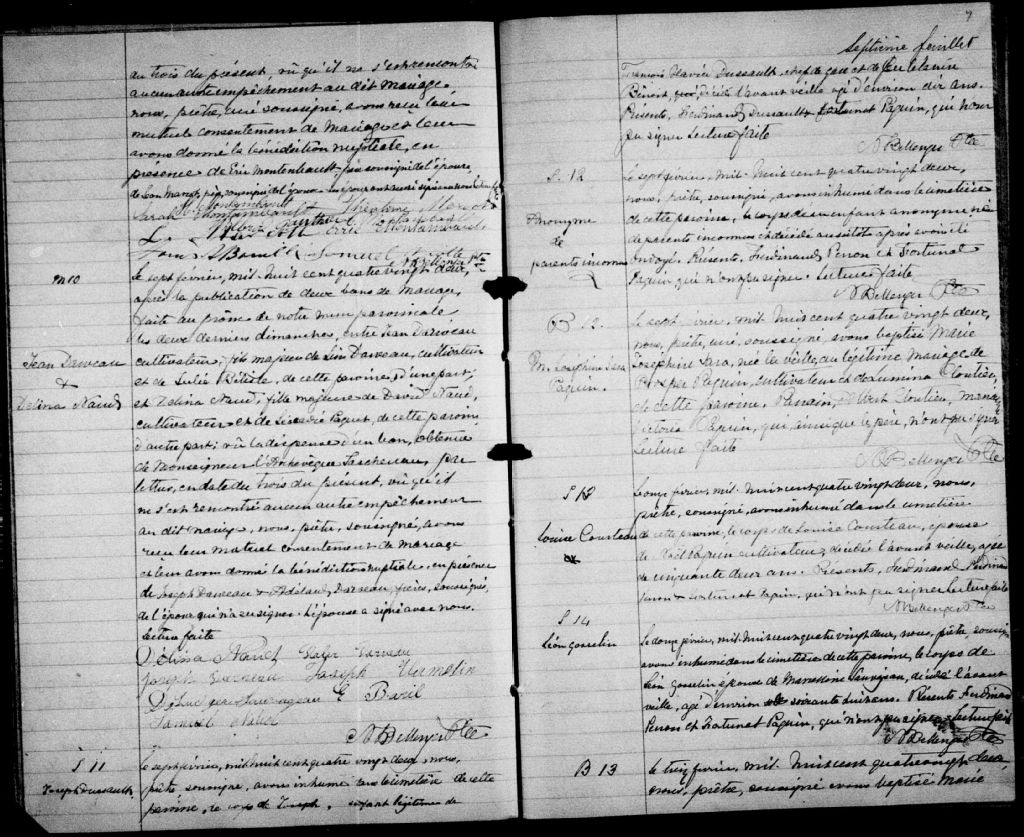 au trois du présent, vû qu'il ne s'est rencontré
aucun autre empêchement au dit mariage,
nous, prêtre, curé soussigné, avons reçu leur
mutuel consentement de mariage et leur
avons donné la bénédiction nuptiale, en
présence de Eric Montembault soussigné de l'épouse,
de soussigné de l'époux
Sarah Montambault Théophile
Eric Montambault
Louis
Samuel
M 10
Le sept février, mil huit cent quatre vingt deux,
après la publication de deux bans de mariage,
faite au prône de notre messe paroissiale
les deux derniers dimanches, entre Jean Darveau
Jean Darveau
&
Delina Naud
cultivateur, fils majeur de Léon Darveau, cultivateur
et de Julie Bélisle, de cette paroisse, d'une part;
et Delina Naud, fille majeure de David Naud,
cultivateur et de Léocadie Paquet, de cette paroisse,
d'autre part; vû la dispense d'un ban, obtenue
de Monseigneur l'Archevêque Taschereau, par
lettre, en date du trois du présent, vû qu'il
ne s'est rencontré aucun autre empêchement
au dit mariage, nous, prêtre, soussigné, avons
reçu leur mutuel consentement de mariage
et leur avons donné la bénédiction nuptiale, en présence
de Joseph Darveau & Adélard Darveau, frère, soussignés,
de l'époux qui n'a su signer. L'épouse a signé avec nous.
Lecture faite
Délina Naud Darveau
Joseph Darveau Joseph Hamelin
E Baril
Samuel
N Bellenger Ptre
S 11
Joseph Dussault
Le sept février, mil huit cent quatre vingt deux, nous,
prêtre, soussigné, avons inhumé dans le cimetière de cette
paroisse, le corps de Joseph, enfant légitime de
7
Septième feuillet
François Xavier Dussault, chef de gare et de
Benoit, décédé l'avant veille agé d'environ dix ans.
Présents, Ferdinand Dussault Fortunat Paquin, qui n'ont
pu signer Lecture faite
N Bellenger Ptre
S. 12
Le sept février, mil huit cent quatre vingt deux,
nous, prêtre, soussigné, avons inhumé dans le cimetière
Anonyme
de
parents inconnus
de cette paroisse, le corps d'un enfant anonyme né
de parents inconnus et décédé aussitôt après avoir été
ondoyé. Présents, Ferdinand Perron et Fortunat
Paquin qui n'ont pu signer. Lecture faite
N Bellenger Ptre
B 12.
Le sept février, mil huit cent quatre vingt deux,
nous, prêtre, curé, soussigné, avons baptisé Marie
M. Joséphine Lara
Paquin.
Joséphine Lara, née la veille, du légitime mariage de
Prosper Paquin, cultivateur et de Lumina Cloutier,
de cette paroisse. Parrain, Albert Cloutier, marraine
Victoria Paquin, qui, ainsi que le père, n'ont pu signer
Lecture faite
N Bellenger Ptre
S 13
Le onze février, mil huit cent quatre vingt deux, nous,
prêtre, soussigné, avons inhumé dans le cimetière
Louise Courteau
de cette paroisse, le corps de Louise Courteau, épouse
de Paquin cultivateur, décédée l'avant veille, agée
de cinquante deux ans. Présents, Ferdinand
Perron & Fortunat Paquin, qui n'ont pu signer Lecture faite
N Bellenger Ptre
S 14
Léon Gosselin
Le douze février, mil huit cent quatre vingt deux, nous, prêtre, soussigné
avons inhumé dans le cimetière de cette paroisse, le corps de
Léon Gosselin époux de Marcelline Sauvageau, décédé l'avant
veille, agé d'environ soixante huit ans. Présents Ferdinand
Perron et Fortunat Paquin, qui n'ont pu signer. Lecture faite
N Bellenger Ptre
B 13
Le treize février, mil huit cent quatre vingt deux,
nous, prêtre, soussigné avons baptisé Marie